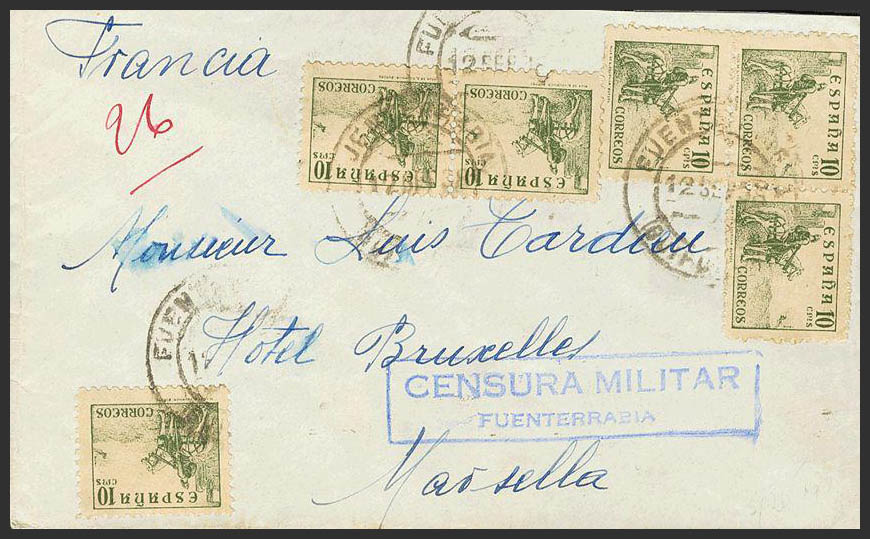 Francia
26
Monsieur Luis Tardieu
Hotel Bruxelles
Marsella
CENSURA MILITAR
FUENTERRABIA
CORREOS
ESPAÑA 10 CTS
CORREOS
ESPAÑA 10 CTS
CORREOS
ESPAÑA 10 CTS
CORREOS
ESPAÑA 10 CTS
CORREOS
ESPAÑA 10 CTS
CORREOS
ESPAÑA 10 CTS
12 FEB
FUENTERRABIA